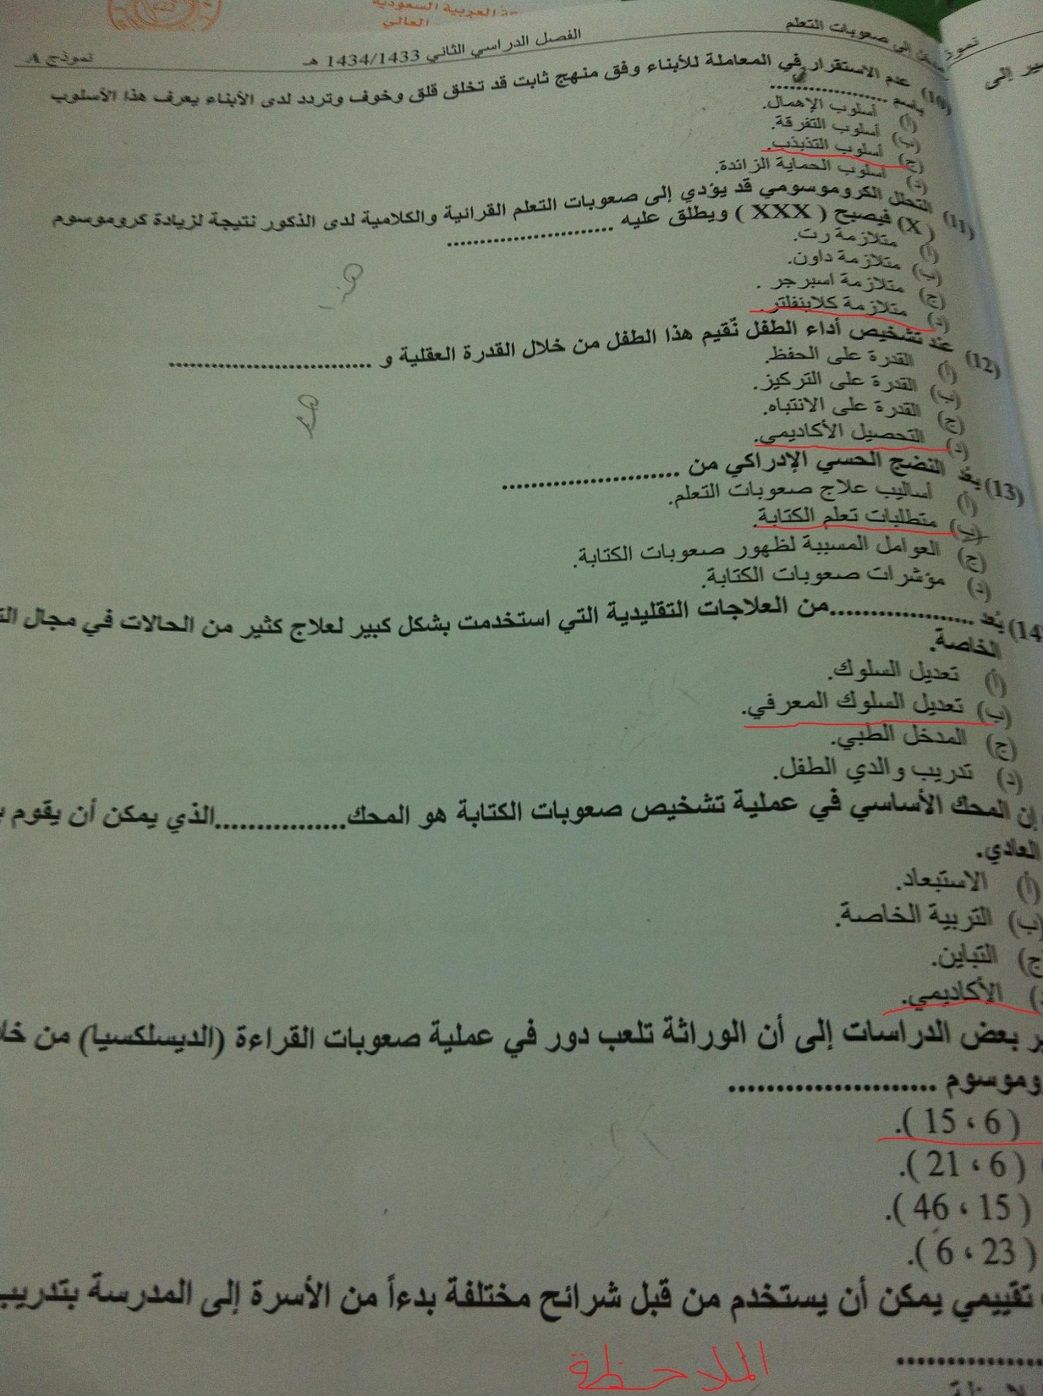 ة العربية السعودية
العالي
إلى صعوبات التعلم
الفصل الدراسي الثاني 1434/1433 هـ
نموذج A
10) عدم الاستقرار في المعاملة للأبناء وفق منهج ثابت قد تخلق قلق وخوف وتردد لدى الأبناء يعرف هذا الأسلوب
باسم ....................
أ) أسلوب الإهمال.
ب) أسلوب التفرقة.
ج) أسلوب التذبذب.
د) أسلوب الحماية الزائدة.
11) التحلل الكروموسومي قد يؤدي إلى صعوبات التعلم القرائية والكلامية لدى الذكور نتيجة لزيادة كروموسوم
(X) فيصبح (XXX) ويطلق عليه ........................
أ) متلازمة رت.
ب) متلازمة داون.
ج) متلازمة اسبرجر .
د) متلازمة كلاينفلتر.
12) عند تشخيص أداء الطفل نُقيم هذا الطفل من خلال القدرة العقلية و ............................
أ) القدرة على الحفظ.
ب) القدرة على التركيز.
ج) القدرة على الانتباه.
د) التحصيل الأكاديمي.
13) يعد النضج الحسي الإدراكي من ........................
أ) أساليب علاج صعوبات التعلم.
ب) متطلبات تعلم الكتابة.
ج) العوامل المسببة لظهور صعوبات الكتابة.
د) مؤشرات صعوبات الكتابة.
14) يُعد ..................من العلاجات التقليدية التي استخدمت بشكل كبير لعلاج كثير من الحالات في مجال
الخاصة.
أ) تعديل السلوك.
ب) تعديل السلوك المعرفي.
ج) المدخل الطبي.
د) تدريب والدي الطفل.
إن المحك الأساسي في عملية تشخيص صعوبات الكتابة هو المحك................الذي يمكن أن يقوم
العادي.
أ) الاستبعاد.
ب) التربية الخاصة.
ج) التباين.
) الأكاديمي.
ر بعض الدراسات إلى أن الوراثة تلعب دور في عملية صعوبات القراءة (الديسلكسيا) من خلا
وموسوم ........................
( 6 ، 15 ).
( 6 ، 21 ).
( 15 ، 46 ).
( 23 ، 6 ).
تقييمي يمكن أن يستخدم من قبل شرائح مختلفة بدءاً من الأسرة إلى المدرسة بتدريب
................
الملاحظة